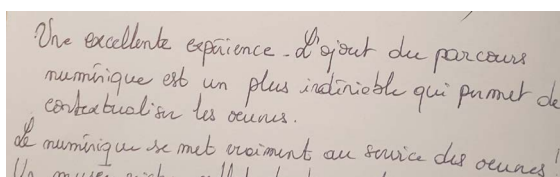 Une excellente expérience. L'ajout du parcours
numérique est un plus indéniable qui permet de
contextualiser les oeuvres.
Le numérique se met vraiment au service des oeuvres !
Un